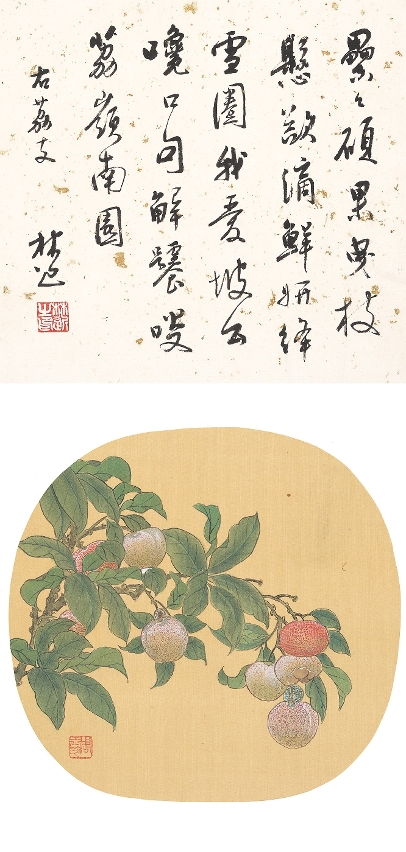 纍々碩果曳枝
懸欲滴鮮妍絳
雪團我愛坡公
口句解饞
荔嶺南園
右荔支
林